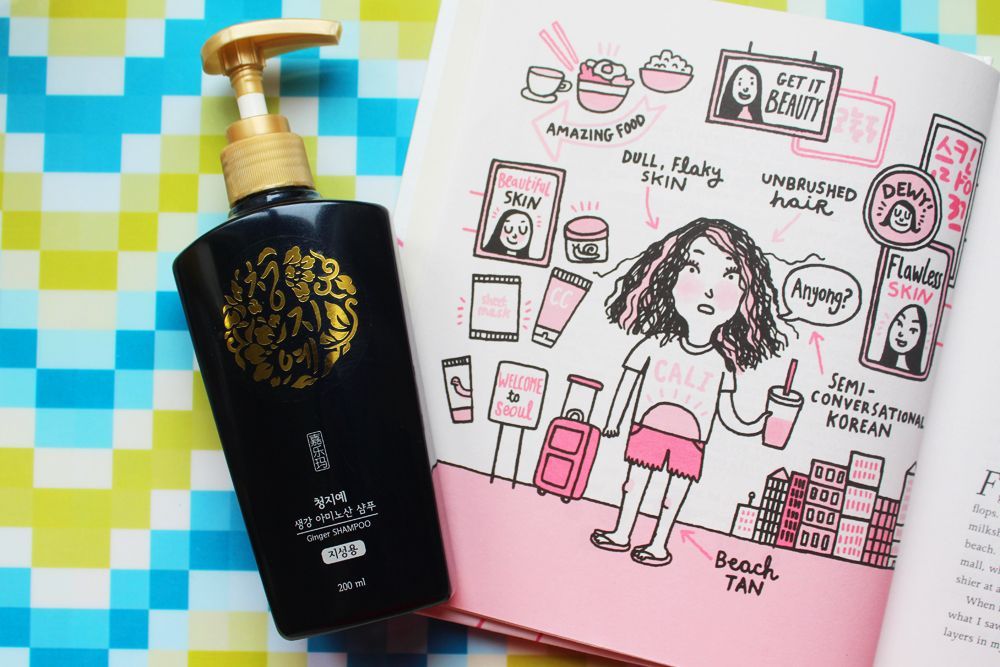 청
지
예
嘉乐玛
청지예
생강 아미노산 샴푸
Ginger SHAMPOO
지성용
200 ml
AMAZING FOOD
GET IT
BEAUTY
DULL, Flaky
SKIN
UNBRUSHED
hair
Beautiful
SKIN
DEWY!
스킨
Flawless
SKIN
sheet
mask
CC
Anyong?
CALI
WELCOME
to
Seoul
SEMI-
CONVERSATIONAL
KOREAN
Beach
TAN
F
flops.
milksh
beach.
mall, w
shier at a
When I
what I saw
layers in m